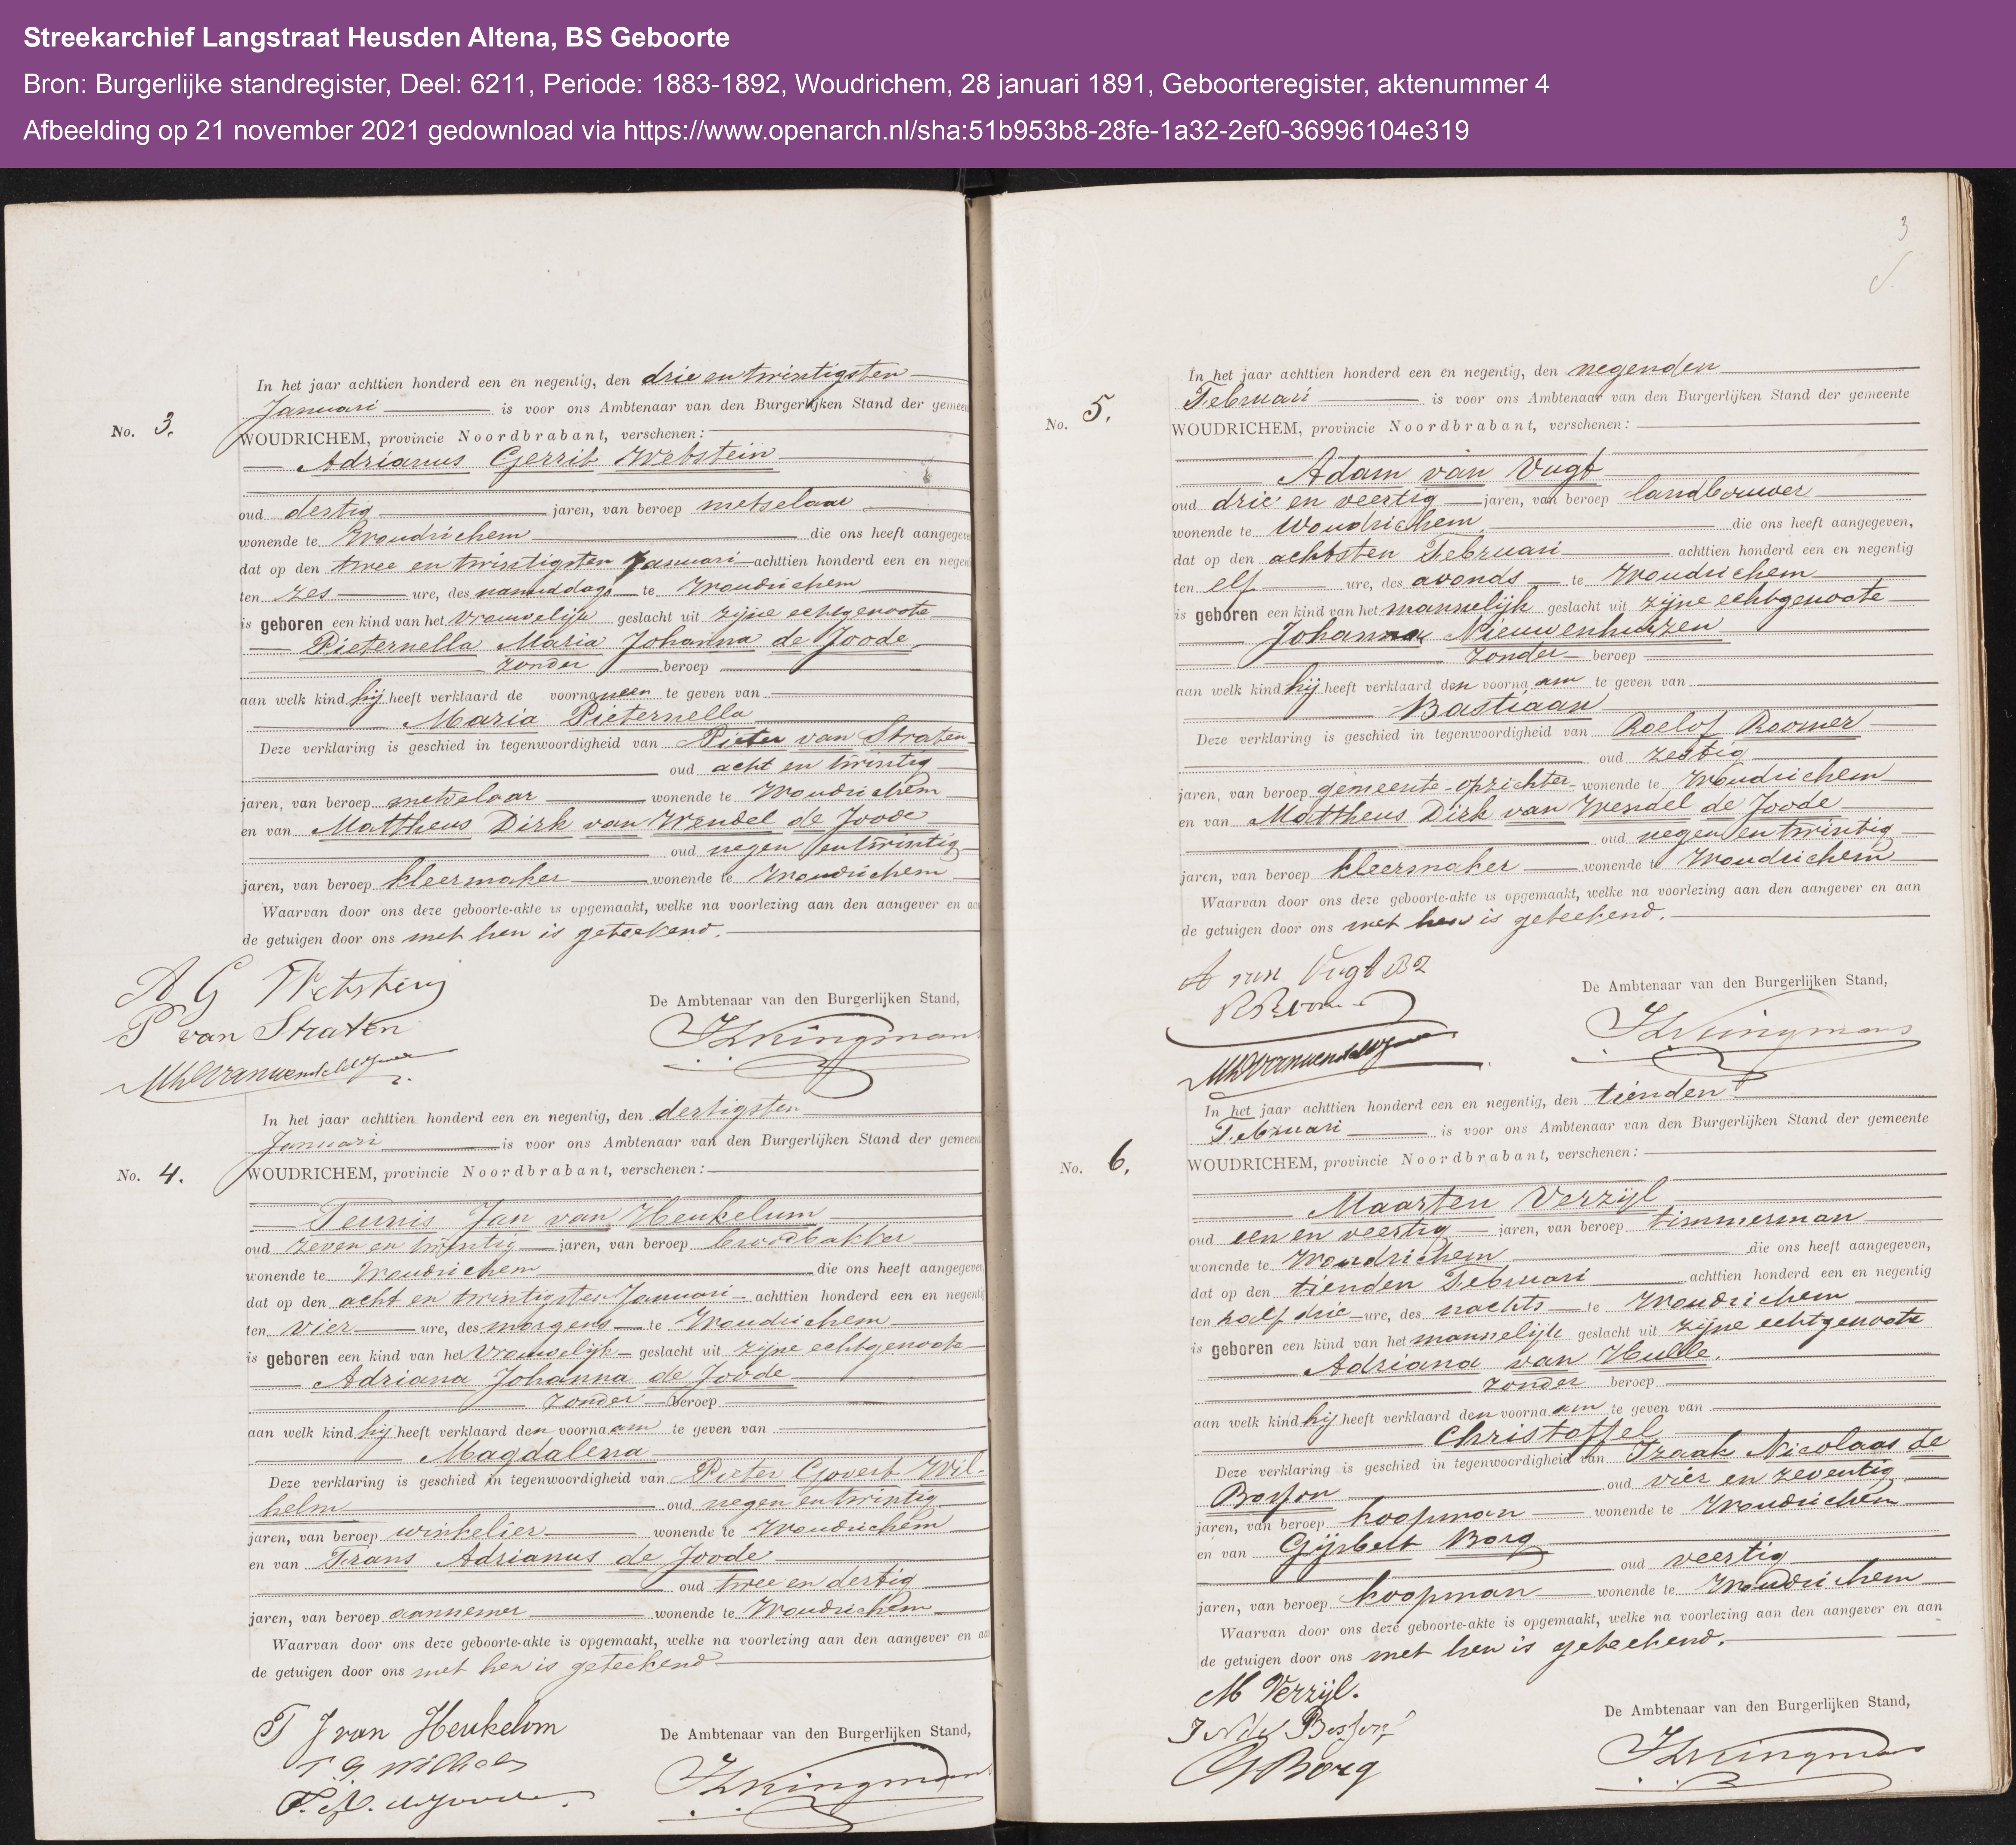 Streekarchief Langstraat Heusden Altena, BS Geboorte
Bron: Burgerlijke standregister, Deel: 6211, Periode: 1883-1892, Woudrichem, 28 januari 1891, Geboorteregister, aktenummer 4
Afbeelding op 21 november 2021 gedownload via https://www.openarch.nl/sha:51b953b8-28fe-1a32-2ef0-36996104e319
In het jaar achttien honderd een en negentig, den drie en twintigsten
Januari is voor ons Ambtenaar van den Burgerlijken Stand der gemeen
No. 3.
WOUDRICHEM, provincie Noordbrabant, verschenen:
Adrianus Gerrit Wetstein
oud dertig jaren, van beroep metselaar
wonende te Woudrichem die ons heeft aangegeve
dat op den twee en twintigsten Januari achttien honderd een en negen
ten zes ure, des namiddags te Woudrichem
is geboren een kind van het Vrouwelijk geslacht uit zijne echtgenoote
Pieternella Maria Johanna de Joode
zonder beroep
aan welk kind hij heeft verklaard de voornamen te geven van
Maria Pieternella
Deze verklaring is geschied in tegenwoordigheid van Pieter van Straten
oud acht en twintig
jaren, van beroep metselaar wonende te Woudrichem
en van Mattheus Dirk van Wendel de Joode
oud negen en twintig
jaren, van beroep kleermaker wonende te Woudrichem
Waarvan door ons deze geboorte-akte is opgemaakt, welke na voorlezing aan den aangever en aa
de getuigen door ons met hen is geteekend.
A G Wetstein
P van Straten
De Ambtenaar van den Burgerlijken Stand,
In het jaar achttien honderd een en negentig, den dertigsten
Januari is voor ons Ambtenaar van den Burgerlijken Stand der gemeen
No. 4.
WOUDRICHEM, provincie Noordbrabant, verschenen:
Teunis Jan van Heukelum
oud zeven en twintig jaren, van beroep broodbakker
wonende te Woudrichem die ons heeft aangegeven
dat op den acht en twintigsten Januari achttien honderd een en negenti
ten vier ure, des morgens te Woudrichem
is geboren een kind van het Vrouwelijk geslacht uit zijne echtgenoote
Adriana Johanna de Joode
zonder beroep
aan welk kind hij heeft verklaard den voornaam te geven van
Magdalena
Deze verklaring is geschied in tegenwoordigheid van Pieter Govert Wil-
helm oud negen en twintig
jaren, van beroep winkelier wonende te Woudrichem
en van Frans Adrianus de Joode
oud twee en dertig
jaren, van beroep aannemer wonende te Woudrichem
Waarvan door ons deze geboorte-akte is opgemaakt, welke na voorlezing aan den aangever en aa
de getuigen door ons met hen is geteekend
T J van Heukelom
De Ambtenaar van den Burgerlijken Stand,
3
In het jaar achttien honderd een en negentig, den negenden
Februari is voor ons Ambtenaar van den Burgerlijken Stand der gemeente
No. 5.
WOUDRICHEM, provincie Noordbrabant, verschenen:
Adam van Vugt
oud drie en veertig jaren, van beroep landbouwer
wonende te Woudrichem die ons heeft aangegeven,
dat op den achtsten Februari achttien honderd een en negentig
ten elf ure, des avonds te Woudrichem
is geboren een kind van het mannelijk geslacht uit zijne echtgenoote
Johanna Nieuwenhuizen
zonder beroep
aan welk kind hij heeft verklaard den voornaam te geven van
Bastiaan
Deze verklaring is geschied in tegenwoordigheid van Roelof Roomer
oud zestig
jaren, van beroep gemeente-opzichter wonende te Woudrichem
en van Mattheus Dirk van Wendel de Joode
oud negen en twintig
jaren, van beroep kleermaker wonende te Woudrichem
Waarvan door ons deze geboorte-akte is opgemaakt, welke na voorlezing aan den aangever en aan
de getuigen door ons met hen is geteekend.
A van Vugt Bz
De Ambtenaar van den Burgerlijken Stand,
In het jaar achttien honderd een en negentig, den tienden
Februari is voor ons Ambtenaar van den Burgerlijken Stand der gemeente
No. 6.
WOUDRICHEM, provincie Noordbrabant, verschenen:
Maarten Verzijl
oud een en veertig jaren, van beroep timmerman
wonende te Woudrichem die ons heeft aangegeven,
dat op den tienden Februari achttien honderd een en negentig
ten half drie ure, des nachts te Woudrichem
is geboren een kind van het mannelijk geslacht uit zijne echtgenoote
Adriana van Hulle.
zonder beroep
aan welk kind hij heeft verklaard den voornaam te geven van
Christoffel
Deze verklaring is geschied in tegenwoordigheid van Izaak Nicolaas de
Bosson oud vier en zeventig
jaren, van beroep koopman wonende te Woudrichem
en van Gijsbert Borg
oud veertig
jaren, van beroep koopman wonende te Woudrichem
Waarvan door ons deze geboorte-akte is opgemaakt, welke na voorlezing aan den aangever en aan
de getuigen door ons met hen is geteekend.
M Verzijl.
G Borg
De Ambtenaar van den Burgerlijken Stand,